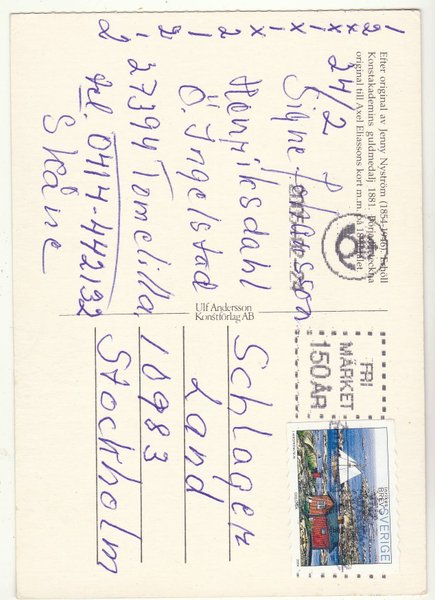 Efter original av Jenny Nyström (1854-1946). Erhöll
Konstakademins guldmedalj 1881. Började teckna
original till Axel Eliassons kort m.m. på 1890-talet
1 x x 1 x 1 x x 2 1 2 2
24/2
Signe P Hansson
Henriksdahl
Ö. Ingelstad
27394 Tomelilla
tel. 0414-442132
Skåne
Ulf Andersson
Konstförlag AB
Schlager
Land
10983
Stockholm
FRI
MÄRKET
150 ÅR
SVERIGE
BREV